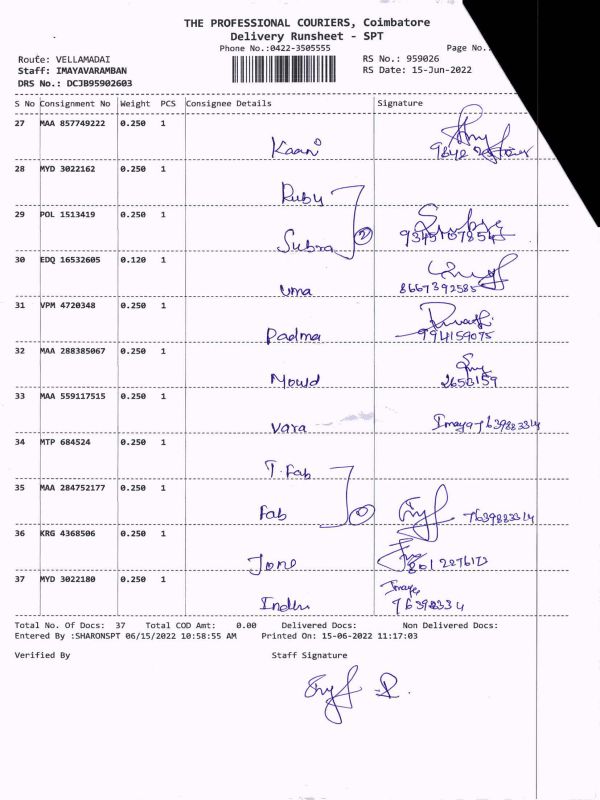 THE PROFESSIONAL COURIERS, Coimbatore
Delivery Runsheet - SPT
Phone No.:0422-3505555 Page No.:
Route: VELLAMADAI RS No.: 959026
Staff: IMAYAVARAMBAN RS Date: 15-Jun-2022
DRS No.: DCJB95902603
S No Consignment No Weight PCS Consignee Details Signature
27 MAA 857749222 0.250 1
Kaani
28 MYD 3022162 0.250 1
Ruby
29 POL 1513419 0.250 1
Subra 2
30 EDQ 16532605 0.120 1
uma 8667392585
31 VPM 4720348 0.250 1
Padma 994159075
32 MAA 288385067 0.250 1
Mould 2650159
33 MAA 559117515 0.250 1
Vara Imaya 7639883314
34 MTP 684524 0.250 1
T. Fab
35 MAA 284752177 0.250 1
Fab 7639883314
36 KRG 4368506 0.250 1
Jone
37 MYD 3022180 0.250 1
Indhu Imaya
Total No. Of Docs: 37 Total COD Amt: 0.00 Delivered Docs: Non Delivered Docs:
Entered By :SHARONSPT 06/15/2022 10:58:55 AM Printed On: 15-06-2022 11:17:03
Verified By Staff Signature